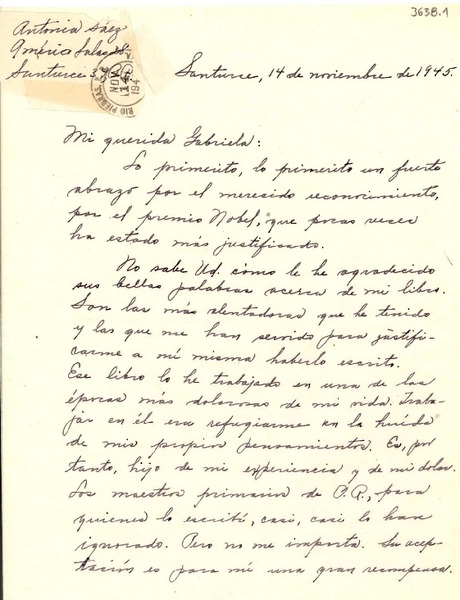 3638.1
Antonia Sáez
América Salas
Santurce
RIO PIEDRAS, P.R.
NOV
14
194
Santurce, 14 de noviembre de 1945.
Mi querida Gabriela:
Lo primerito, lo primerito un fuerte
abrazo por el merecido reconocimiento,
por el premio Nobel, que pocas veces
ha estado más justificado.
No sabe Ud. cómo le he agradecido
sus bellas palabras acerca de mi libro.
Son las más alentadoras que he tenido
y las que me han servido para justifi-
carme a mí misma haberlo escrito.
Ese libro lo he trabajado en una de las
épocas más dolorosas de mi vida. Traba-
jar en él era refugiarme en la huída
de mis propios pensamientos. Es, por
tanto, hijo de mi experiencia y de mi dolor.
Los maestros primarios de P.R., para
quienes lo escribí, casi, casi lo han
ignorado. Pero no me importa. Su acep-
tación es para mí una gran recompensa.